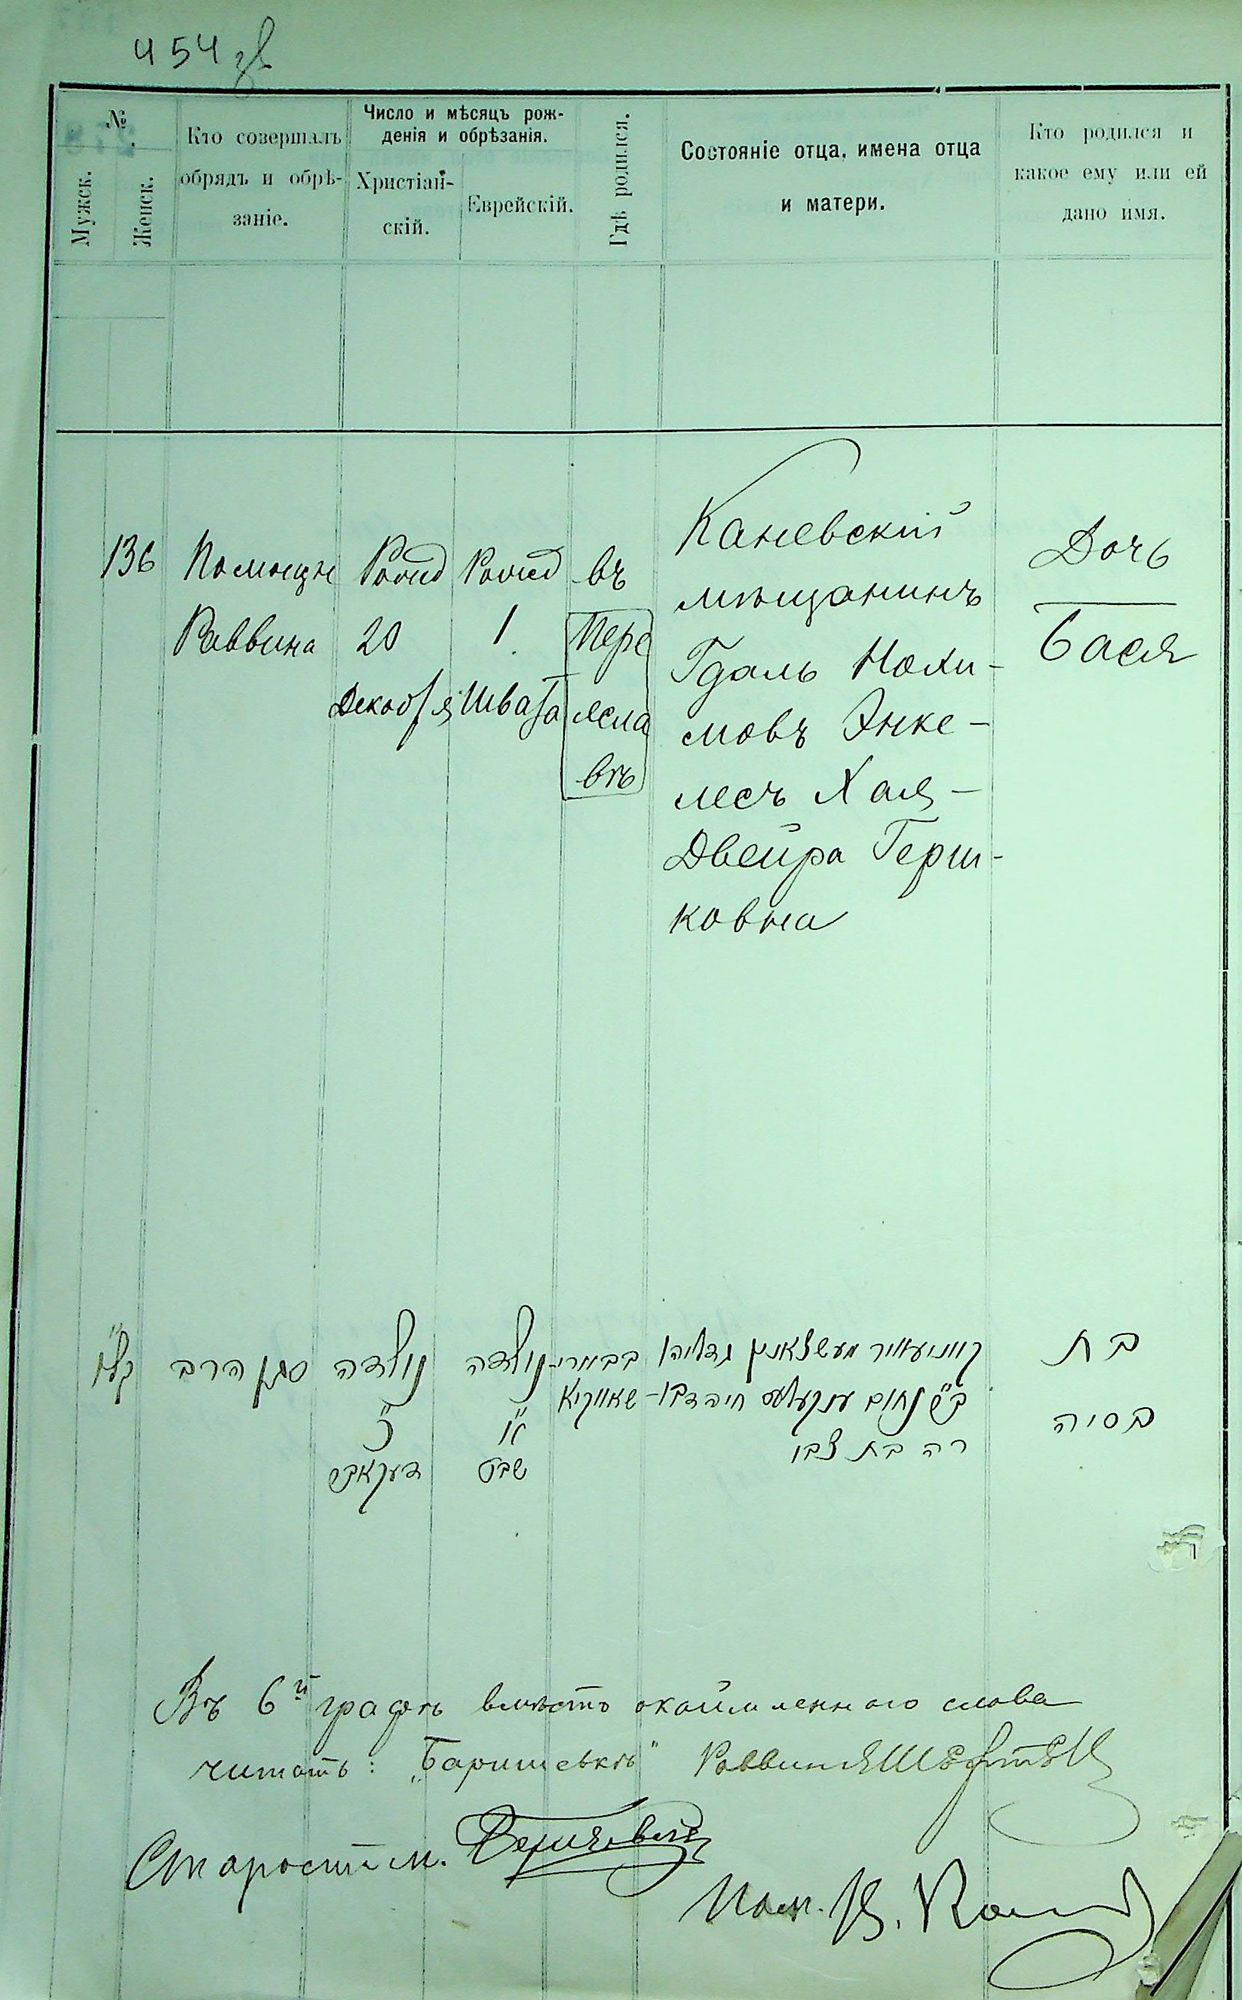 454 зв
№
Мужск.
Женск.
Кто совершалъ
обрядъ и обрѣ-
заніе.
Число и мѣсяцъ рож-
денія и обрѣзанія.
Христіан-
скій.
Еврейскій.
Гдѣ родился.
Состояніе отца, имена отца
и матери.
Кто родился и
какое ему или ей
дано имя.
136
Помощн
Раввина
20
Декабря
1
Швата
въ
Пере
ясла
въ
Каневскій
мѣщанинъ
Гдаль Нохи-
мовъ Энке-
лесъ Хая-
Двейра Герш-
ковна
Дочь
Бася
קל"ו
סגן הרב
נולדה
כ'
דעקאבר
נולדה
א'
שבט
מעשצאנין גדליהו
ב"ר נחום ענקעלעס חיה דבו-
רה בת צבי
בת
בסיה
Въ 6й графѣ вмѣсто окоймленнаго слова
читать: „Баришевкѣ" Раввинъ
Староста м.
Пом. К.